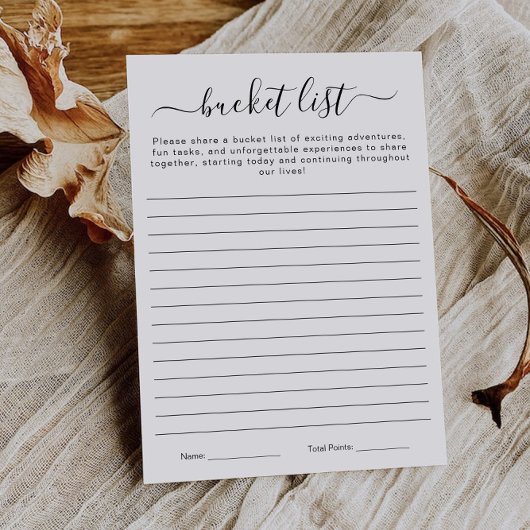 bucket list
Please share a bucket list of exciting adventures,
fun tasks, and unforgettable experiences to share
together, starting today and continuing throughout
our lives!
Name: ____________ Total Points: ____________